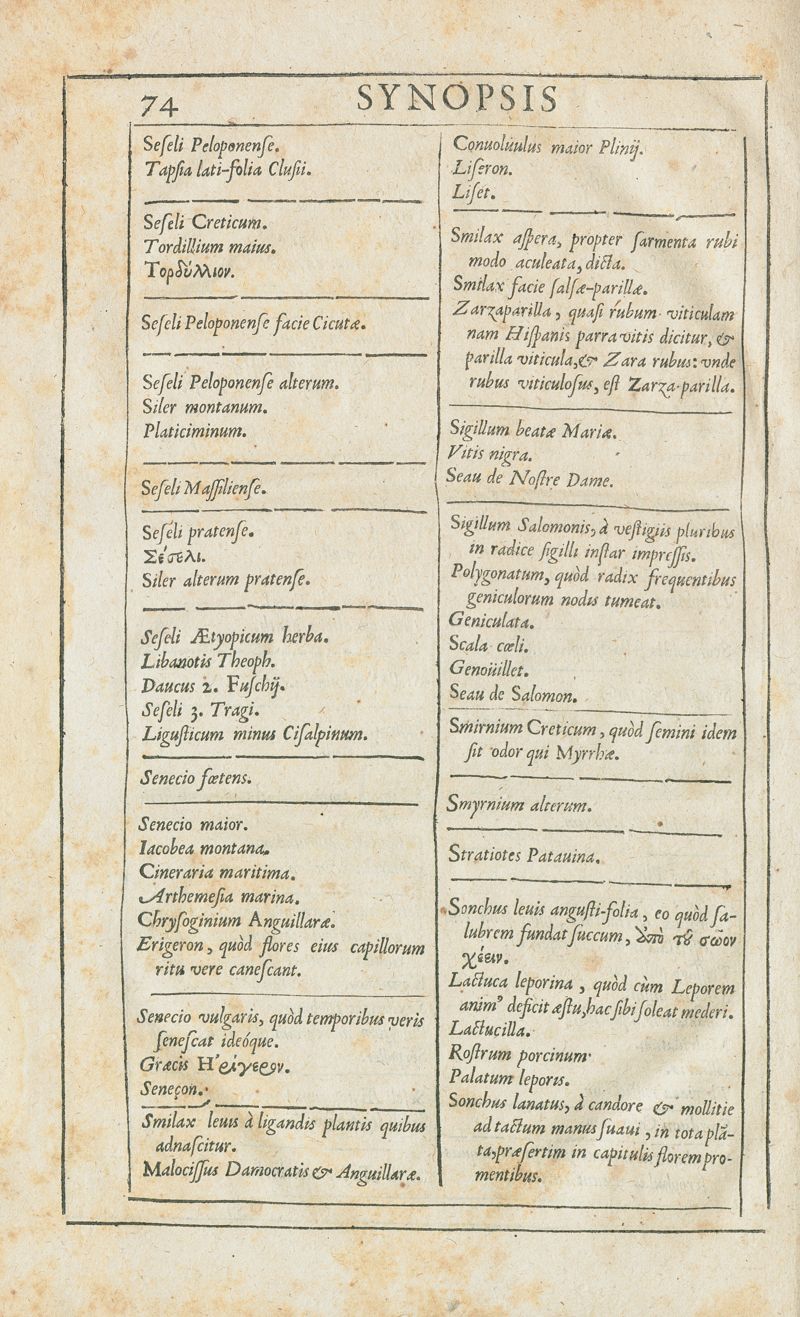 74
SYNOPSIS
Seſeli Peloponenſe.
Tapſia lati-folia Cluſii.
Seſeli Creticum.
Tordillium maius.
Τορδύλλιον.
Seſeli Peloponenſe facie Cicutæ.
Seſeli Peloponenſe alterum.
Siler montanum.
Platiciminum.
Seſeli Maſſilienſe.
Seſéli pratenſe.
Σέσελι.
Siler alterum pratenſe.
Seſeli Ætyopicum herba.
Libanotis Theoph.
Daucus 2. Fuſchij.
Seſeli 3. Tragi.
Liguſticum minus Ciſalpinum.
Senecio fœtens.
Senecio maior.
Iacobea montana.
Cineraria maritima.
Arthemeſia marina.
Chryſoginium Anguillaræ.
Erigeron, quòd flores eius capillorum
ritu vere caneſcant.
Senecio vulgaris, quòd temporibus veris
ſeneſcat ideóque.
Græcis Ηʹρίγερον.
Seneçon.
Smilax leuis à ligandis plantis quibus
adnaſcitur.
Malociſſus Damocratis & Anguillaræ.
Conuoluulus maior Plinij.
Liſeron.
Liſet.
Smilax aſpera, propter ſarmenta rubi
modo aculeata, dicta.
Smilax facie ſalſæ-parillæ.
Zarzaparilla, quaſi rubum viticulam
nam Hiſpanis parra vitis dicitur, &
parilla viticula, & Zara rubus: vnde
rubus viticuloſus, eſt Zarza-parilla.
Sigillum beatæ Mariæ.
Vitis nigra.
Seau de Noſtre Dame.
Sigillum Salomonis, à veſtigiis pluribus
in radice ſigilli inſtar impreſſis.
Polygonatum, quòd radix frequentibus
geniculorum nodis tumeat.
Geniculata.
Scala cœli.
Genoüillet.
Seau de Salomon.
Smirnium Creticum, quòd ſemini idem
ſit odor qui Myrrhæ.
Smyrnium alterum.
Stratiotes Patauina.
Sonchus leuis anguſti-folia, eo quòd ſa-
lubrem fundat ſuccum, ἀπὸ τοῦ σῶον
χέειν.
Lactuca leporina, quòd cùm Leporem
animꝰ deficit æſtu, hac ſibi ſoleat mederi.
Lactucilla.
Roſtrum porcinum.
Palatum leporis.
Sonchus lanatus, à candore & mollitie
ad tactum manus ſuaui, in tota plā-
ta, præſertim in capitulis florem pro-
mentibus.